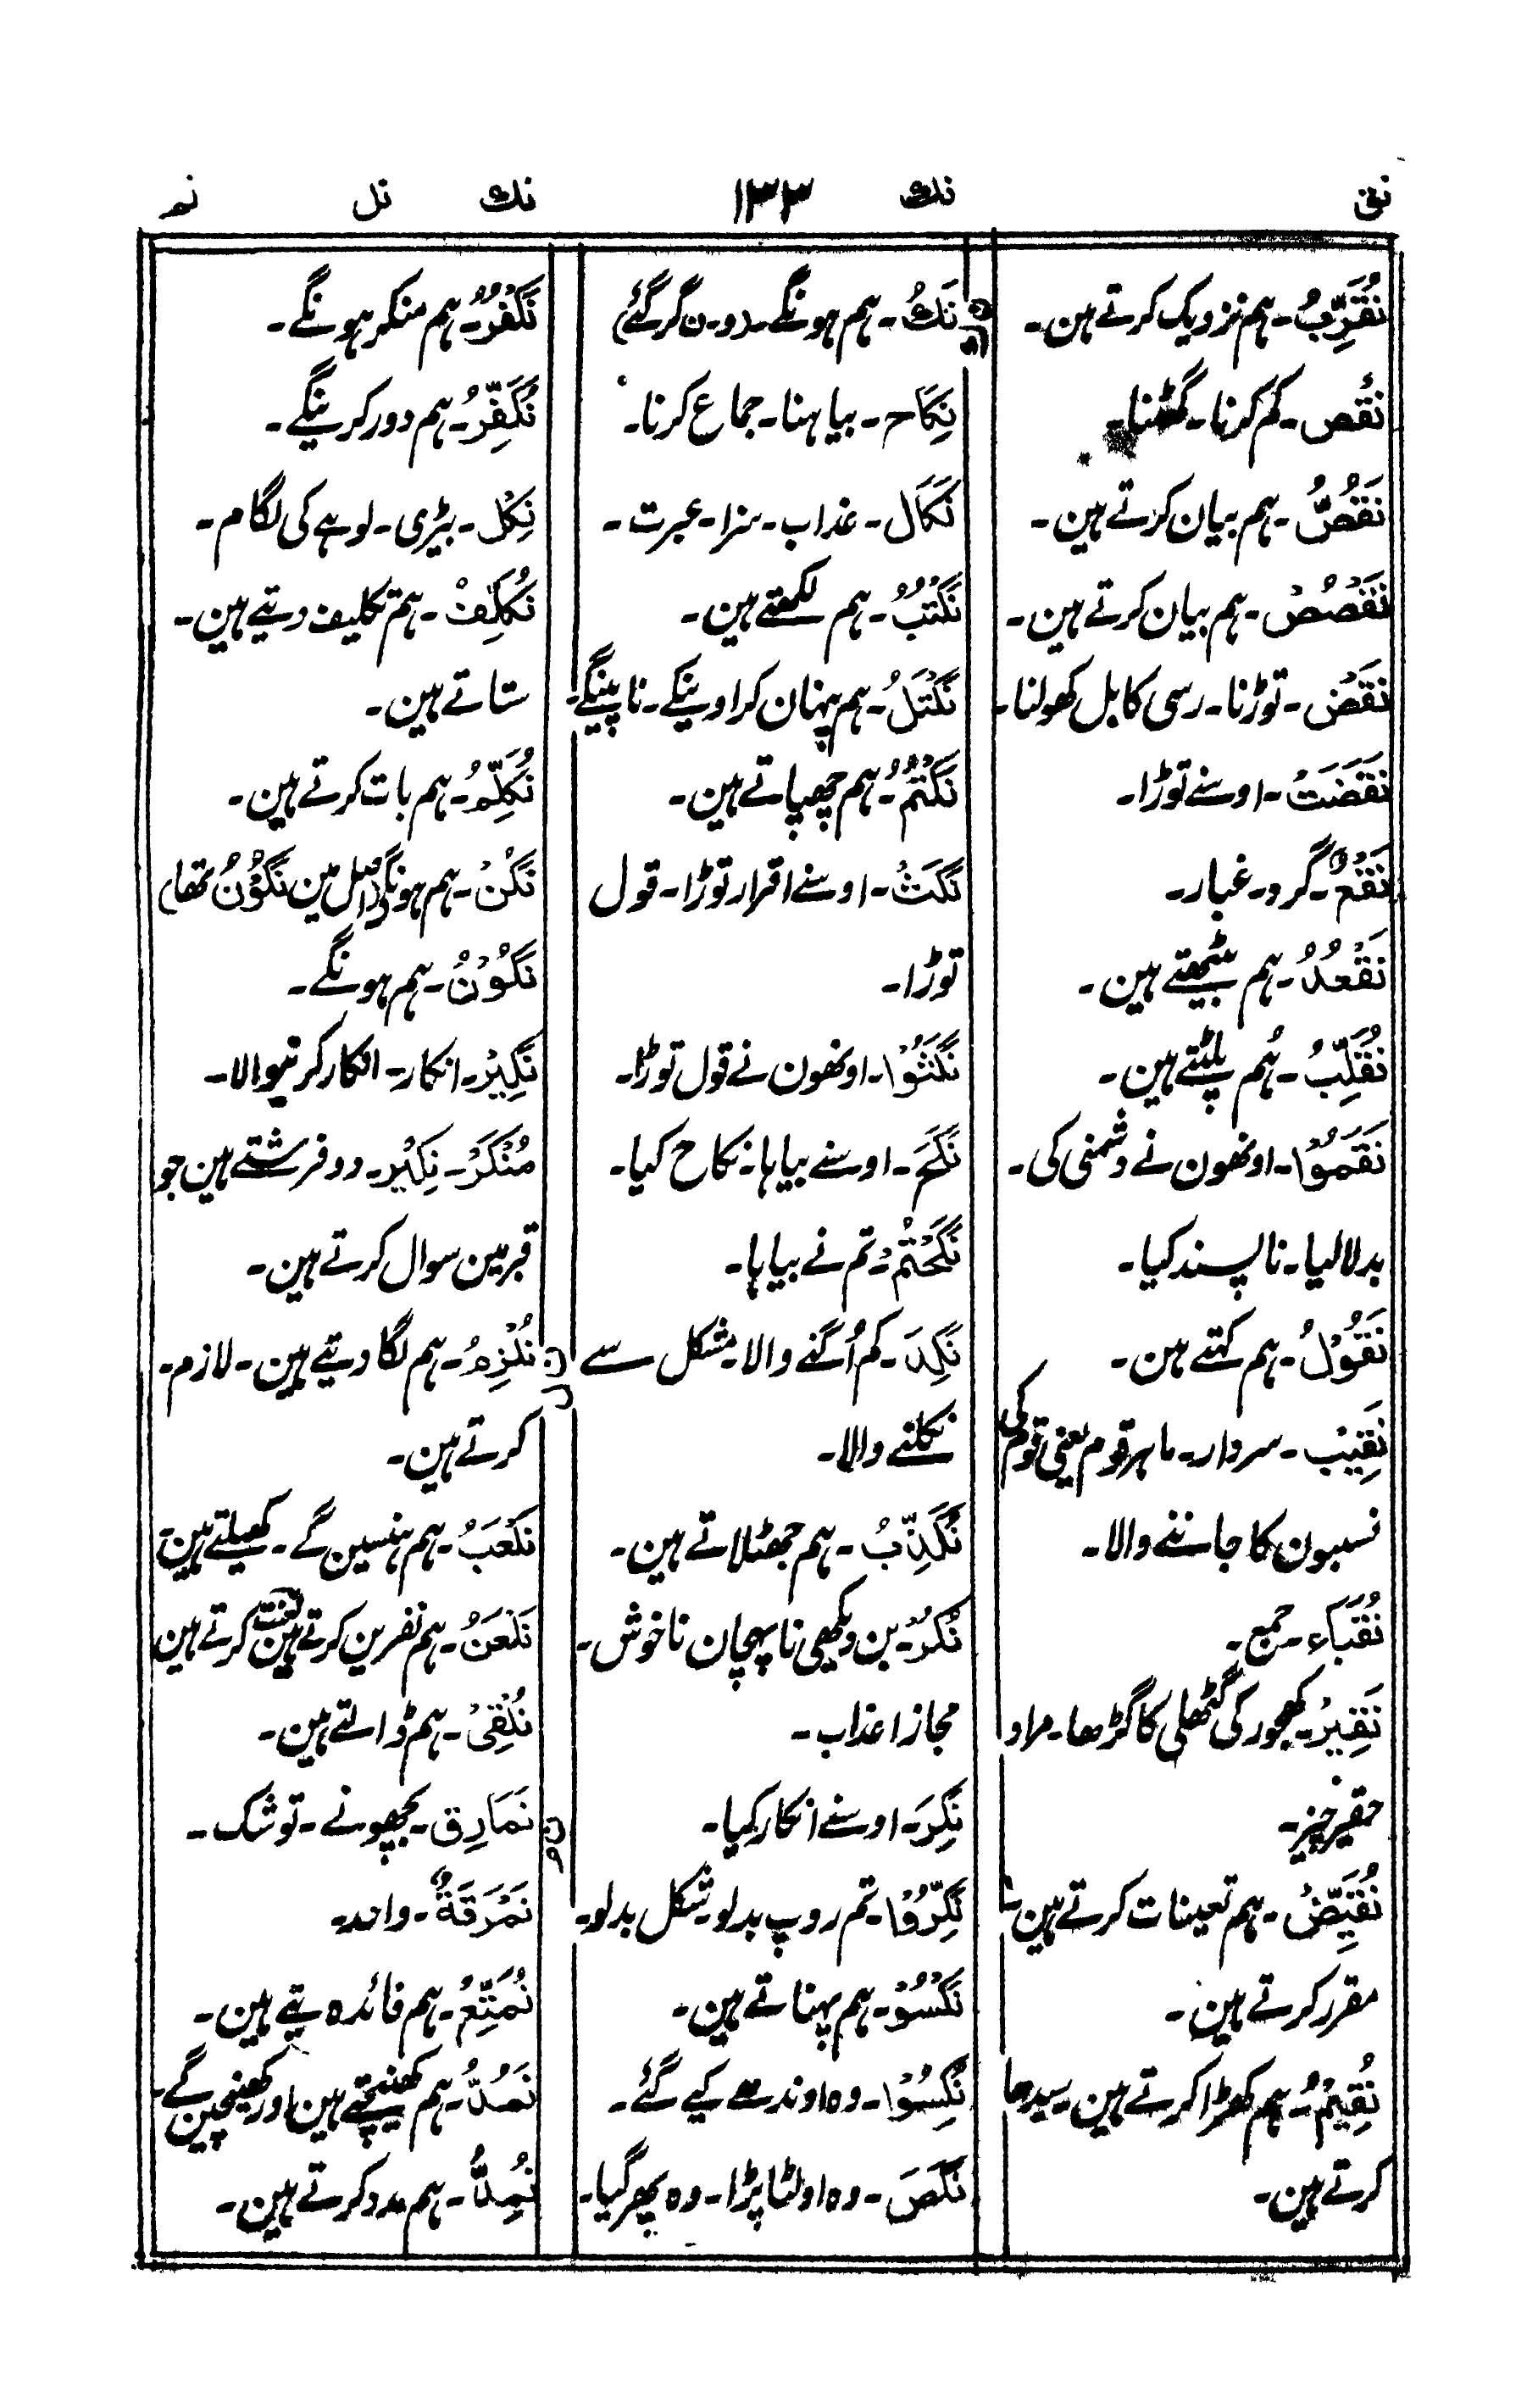 نق نك ۱۳۳ نك نل نم
نُقَرِّبُ۔ ہم نزدیک کرتے ہین۔
نَقْص۔ کم کرنا۔ گھٹنا۔
نَقُصُّ۔ ہم بیان کرتے ہین۔
نَقْصُصْ۔ ہم بیان کرتے ہین۔
نَقْض۔ توڑنا۔ رسی کا بل کھولنا۔
نَقَضَتْ۔ اوسنے توڑا۔
نَقْعٌ۔ گرد۔ غبار۔
نَقْعُدُ۔ ہم بیٹھتے ہین۔
نُقَلِّبُ۔ ہم پلٹتے ہین۔
نَقَمُوْا۔ اونھون نے دشمنی کی۔
بدلا لیا۔ ناپسند کیا۔
نَقُوْلُ۔ ہم کہتے ہین۔
نَقِیْب۔ سردار۔ ماہر قوم یعنی قوم کی
نسبون کا جاننے والا۔
نُقَبَاء۔ جمع۔
نَقِیْر۔ کھجور کی گٹھلی کا گڑھا۔ مراد
حقیر چیز۔
نُقَیِّضُ۔ ہم تعینات کرتے ہین۔
مقرر کرتے ہین۔
نُقِیْمُ۔ ہم کھڑا کرتے ہین۔ سیدھا
کرتے ہین۔
ن ك
نَكُ۔ ہم ہونگے۔ (و۔ ن گر گئے)
نِكَاح۔ بیاہنا۔ جماع کرنا۔
نَكَال۔ عذاب۔ سزا۔ عبرت۔
نَكْتُبُ۔ ہم لکھتے ہین۔
نَكْتَلُ۔ ہم پہنان کراوینگے۔ ناپینگے۔
نَكْتُمُ۔ ہم چھپاتے ہین۔
نَكَثَ۔ اوسنے اقرار توڑا۔ قول
توڑا۔
نَكَثُوْا۔ اونھون نے قول توڑا۔
نَكَحَ۔ اوسنے بیاہا۔ نکاح کیا۔
نَكَحْتُمْ۔ تم نے بیاہا۔
نَكِدَ۔ کم اُگنے والا۔ مشکل سے
نکلنے والا۔
نُكَذِّبُ۔ ہم جھٹلاتے ہین۔
نُكْر۔ بن دیکھی ناپہچان ناخوش۔
مجازا عذاب۔
نَكِرَ۔ اوسنے انکار کیا۔
نَكِّرُوْا۔ تم روپ بدلو۔ شکل بدلو۔
نَكْسُوْ۔ ہم پہناتے ہین۔
نُكِسُوْا۔ وہ اوندھے کیے گئے۔
نَكَصَ۔ وہ اولٹا پڑا۔ وہ پھر گیا۔
نَكْفُرُ۔ ہم منکر ہونگے۔
نُكَفِّرُ۔ ہم دور کرینگے۔
نِكْل۔ بیڑی۔ لوہے کی لگام۔
نُكَلِّفُ۔ ہم تکلیف دیتے ہین۔
ستاتے ہین۔
نُكَلِّمُ۔ ہم بات کرتے ہین۔
نَكُنْ۔ ہم ہونگے (اصل مین نَكُوْنُ تھا)
نَكُوْنُ۔ ہم ہونگے۔
نَكِیْر۔ انکار۔ انکار کرنیوالا۔
مُنْكَر۔ نِكِیْر۔ دو فرشتے ہین جو
قبر مین سوال کرتے ہین۔
ن ل
نُلْزِمُ۔ ہم لگا دیتے ہین۔ لازم۔
کرتے ہین۔
نَلْعَبُ۔ ہم ہنسین گے۔ کھیلتے ہین
نَلْعَنُ۔ ہم نفرین کرتے ہین لعنت کرتے ہین
نُلْقِیْ۔ ہم ڈالتے ہین۔
ن م
نَمَارِق۔ بچھونے۔ توشک۔
نَمْرَقَةٌ۔ واحد۔
نُمَتِّعُ۔ ہم فائدہ یتے ہین۔
نَمُدُّ۔ ہم کھینچتے ہین اور کھینچین گے۔
نُمِدُّ۔ ہم مدد کرتے ہین۔